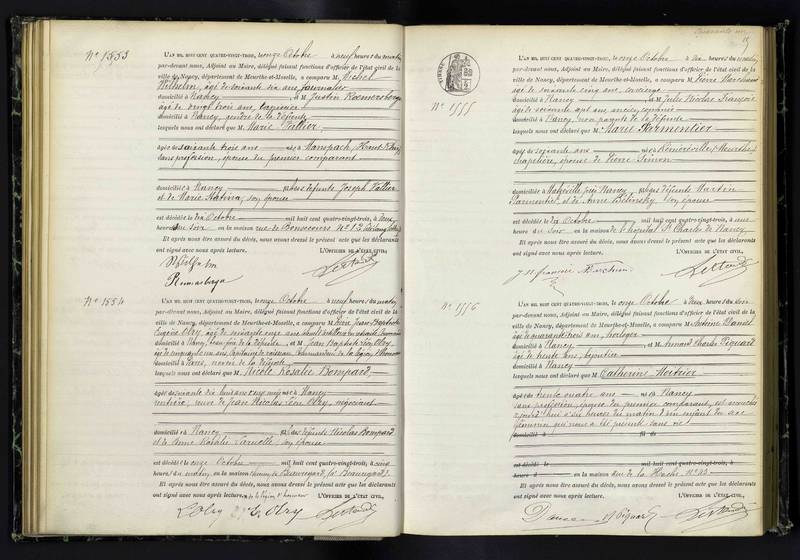 N° 1553
L'AN MIL HUIT CENT QUATRE-VINGT-TROIS, le onze Octobre à neuf heures du matin
par-devant nous, Adjoint au Maire, délégué faisant fonctions d'officier de l'état civil de la
ville de Nancy, département de Meurthe-et-Moselle, a comparu M. Michel
Wilhelm, âgé de soixante dix ans, journalier
domicilié à Nancy et M. Justin
âgé de vingt trois ans,
domicilié à Nancy, gendre de la défunte
lesquels nous ont déclaré que Marie Vallier
âgée de soixante trois ans née à Manspach, Haut-Rhin
sans profession, épouse du premier comparant
domiciliée à Nancy fille des défunts Joseph Vallier
et de Marie son épouse
est décédée le dix Octobre mil huit cent quatre-vingt-trois, à
heures du soir en la maison rue de Bonsecours N° 12
Et après nous être assuré du décès, nous avons dressé le présent acte que les déclarants
ont signé avec nous après lecture. L'OFFICIER DE L'ÉTAT CIVIL,
Wilhelm
N° 1554
L'AN MIL HUIT CENT QUATRE-VINGT-TROIS, le onze Octobre à neuf heures du matin
par-devant nous, Adjoint au Maire, délégué faisant fonctions d'officier de l'état civil de la
ville de Nancy, département de Meurthe-et-Moselle, a comparu M. Jean Baptiste
Eugène Olry, âgé de soixante
domicilié à Nancy, beau frère de la défunte, et M. Jean Baptiste Léon Olry
âgé de cinquante un ans, Capitaine de vaisseau, Commandeur de la Légion d'honneur
domicilié à Paris, neveu de la défunte
lesquels nous ont déclaré que Nicole Rosalie Bompard
âgée de soixante dix huit ans née à Nancy
rentière, veuve de Jean Nicolas Léon Olry, négociant
domiciliée à Nancy fille des défunts Nicolas Bompard
et de Anne Rosalie son épouse
est décédée le onze Octobre mil huit cent quatre-vingt-trois, à cinq
heures du matin en la maison Chemin de Beauregard
Et après nous être assuré du décès, nous avons dressé le présent acte que les déclarants
ont signé avec nous après lecture. L'OFFICIER DE L'ÉTAT CIVIL,
L Olry E. Olry
N° 1555
L'AN MIL HUIT CENT QUATRE-VINGT-TROIS, le onze Octobre à dix heures du matin
par-devant nous, Adjoint au Maire, délégué faisant fonctions d'officier de l'état civil de la
ville de Nancy, département de Meurthe-et-Moselle, a comparu M. Pierre Marchand
âgé de soixante cinq ans, concierge
domicilié à Nancy et M. Jules Nicolas François
âgé de soixante sept ans, ancien commis
domicilié à Nancy, non parents de la défunte
lesquels nous ont déclaré que Marie Parmentier
âgée de soixante ans née à Réméréville, Meurthe
chapelière, épouse de Pierre Simon
domiciliée à Malzéville, près Nancy, fille des défunts Martin
Parmentier et de Anne son épouse
est décédée le dix Octobre mil huit cent quatre-vingt-trois, à une
heure du soir en la maison de l'hôpital St Charles de Nancy
Et après nous être assuré du décès, nous avons dressé le présent acte que les déclarants
ont signé avec nous après lecture. L'OFFICIER DE L'ÉTAT CIVIL,
J N françois
N° 1556
L'AN MIL HUIT CENT QUATRE-VINGT-TROIS, le onze Octobre à deux heures du soir
par-devant nous, Adjoint au Maire, délégué faisant fonctions d'officier de l'état civil de la
ville de Nancy, département de Meurthe-et-Moselle, a comparu M. Antoine
âgé de quarante trois ans, horloger
domicilié à Nancy et M. Armand Charles Piquard
âgé de trente ans, bijoutier
domicilié à Nancy
lesquels nous ont déclaré que Catherine
âgée de trente quatre ans née à Nancy
sans profession, épouse du premier comparant, est accouchée
aujourd'hui à six heures du matin d'un enfant du sexe
féminin, qui nous a été présenté sans vie
domicilié à fil de
est décédé le mil huit cent quatre-vingt-trois, à
heures d en la maison rue de la Hache N° 33
Et après nous être assuré du décès, nous avons dressé le présent acte que les déclarants
ont signé avec nous après lecture. L'OFFICIER DE L'ÉTAT CIVIL,
Piquard